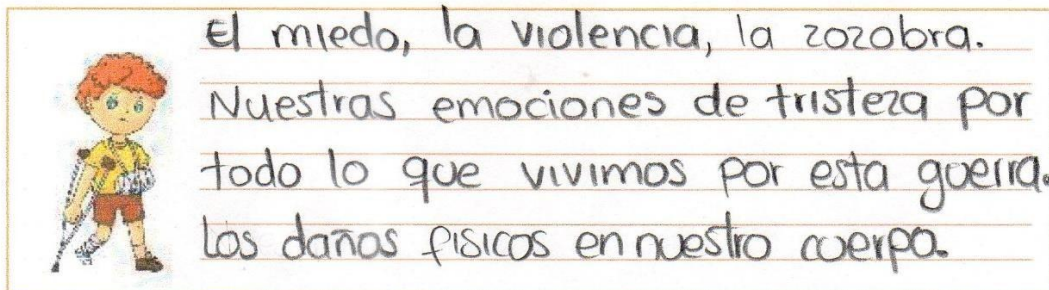 El miedo, la violencia, la zozobra.
Nuestras emociones de tristeza por
todo lo que vivimos por esta guerra.
Los daños fisicos en nuestro cuerpo.